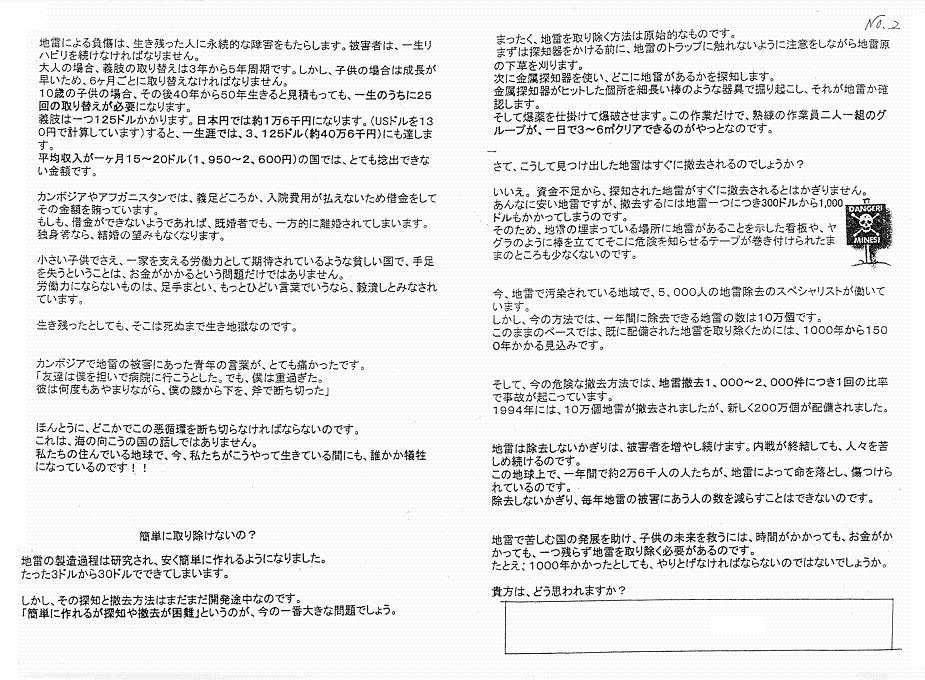 No.2
地雷による負傷は、生き残った人に永続的な障害をもたらします。被害者は、一生リ
ハビリを続けなければなりません。
大人の場合、義肢の取り替えは3年から5年周期です。しかし、子供の場合は成長が
早いため、6ヶ月ごとに取り替えなければなりません。
10歳の子供の場合、その後40年から50年生きると見積もっても、一生のうちに25
回の取り替えが必要になります。
義肢は一つ125ドルかかります。日本円では約1万6千円になります。(USドルを13
0円で計算しています)すると、一生涯では、3、125ドル(約40万6千円)にも達しま
す。
平均収入が一ヶ月15~20ドル(1、950~2、600円)の国では、とても捻出できな
い金額です。
カンボジアやアフガニスタンでは、義足どころか、入院費用が払えないため借金をして
その金額を賄っています。
もしも、借金ができないようであれば、既婚者でも、一方的に離婚されてしまいます。
独身者なら、結婚の望みもなくなります。
小さい子供でさえ、一家を支える労働力として期待されているような貧しい国で、手足
を失うということは、お金がかかるという問題だけではありません。
労働力にならないものは、足手まとい、もっとひどい言葉でいうなら、穀潰しとみなされ
ています。
生き残ったとしても、そこは死ぬまで生き地獄なのです。
カンボジアで地雷の被害にあった青年の言葉が、とても痛かったです。
「友達は僕を担いで病院に行こうとした。でも、僕は重過ぎた。
彼は何度もあやまりながら、僕の膝から下を、斧で断ち切った」
ほんとうに、どこかでこの悪循環を断ち切らなければならないのです。
これは、海の向こうの国の話しではありません。
私たちの住んでいる地球で、今、私たちがこうやって生きている間にも、誰かが犠牲
になっているのです!!
簡単に取り除けないの?
地雷の製造過程は研究され、安く簡単に作れるようになりました。
たった3ドルから30ドルでできてしまいます。
しかし、その探知と撤去方法はまだまだ開発途中なのです。
「簡単に作れるが探知や撤去が困難」というのが、今の一番大きな問題でしょう。
まったく、地雷を取り除く方法は原始的なものです。
まずは探知器をかける前に、地雷のトラップに触れないように注意をしながら地雷原
の下草を刈ります。
次に金属探知器を使い、どこに地雷があるかを探知します。
金属探知器がヒットした個所を細長い棒のような器具で掘り起こし、それが地雷か確
認します。
そして爆薬を仕掛けて爆破させます。この作業だけで、熟練の作業員二人一組のグ
ループが、一日で3~6㎡クリアできるのがやっとなのです。
さて、こうして見つけ出した地雷はすぐに撤去されるのでしょうか?
いいえ。資金不足から、探知された地雷がすぐに撤去されるとはかぎりません。
あんなに安い地雷ですが、撤去するには地雷一つにつき300ドルから1,000
ドルもかかってしまうのです。
そのため、地雷の埋まっている場所に地雷があることを示した看板や、ヤ
グラのように棒を立ててそこに危険を知らせるテープが巻き付けられたま
まのところも少なくないのです。
DANGER!
MINES!
今、地雷で汚染されている地域で、5、000人の地雷除去のスペシャリストが働いて
います。
しかし、今の方法では、一年間に除去できる地雷の数は10万個です。
このままのペースでは、既に配備された地雷を取り除くためには、1000年から150
0年かかる見込みです。
そして、今の危険な撤去方法では、地雷撤去1、000~2、000件につき1回の比率
で事故が起こっています。
1994年には、10万個地雷が撤去されましたが、新しく200万個が配備されました。
地雷は除去しないかぎりは、被害者を増やし続けます。内戦が終結しても、人々を苦
しめ続けるのです。
この地球上で、一年間で約2万6千人の人たちが、地雷によって命を落とし、傷つけら
れているのです。
除去しないかぎり、毎年地雷の被害にあう人の数を減らすことはできないのです。
地雷で苦しむ国の発展を助け、子供の未来を救うには、時間がかかっても、お金がか
かっても、一つ残らず地雷を取り除く必要があるのです。
たとえ、1000年かかったとしても、やりとげなければならないのではないでしょうか。
貴方は、どう思われますか?